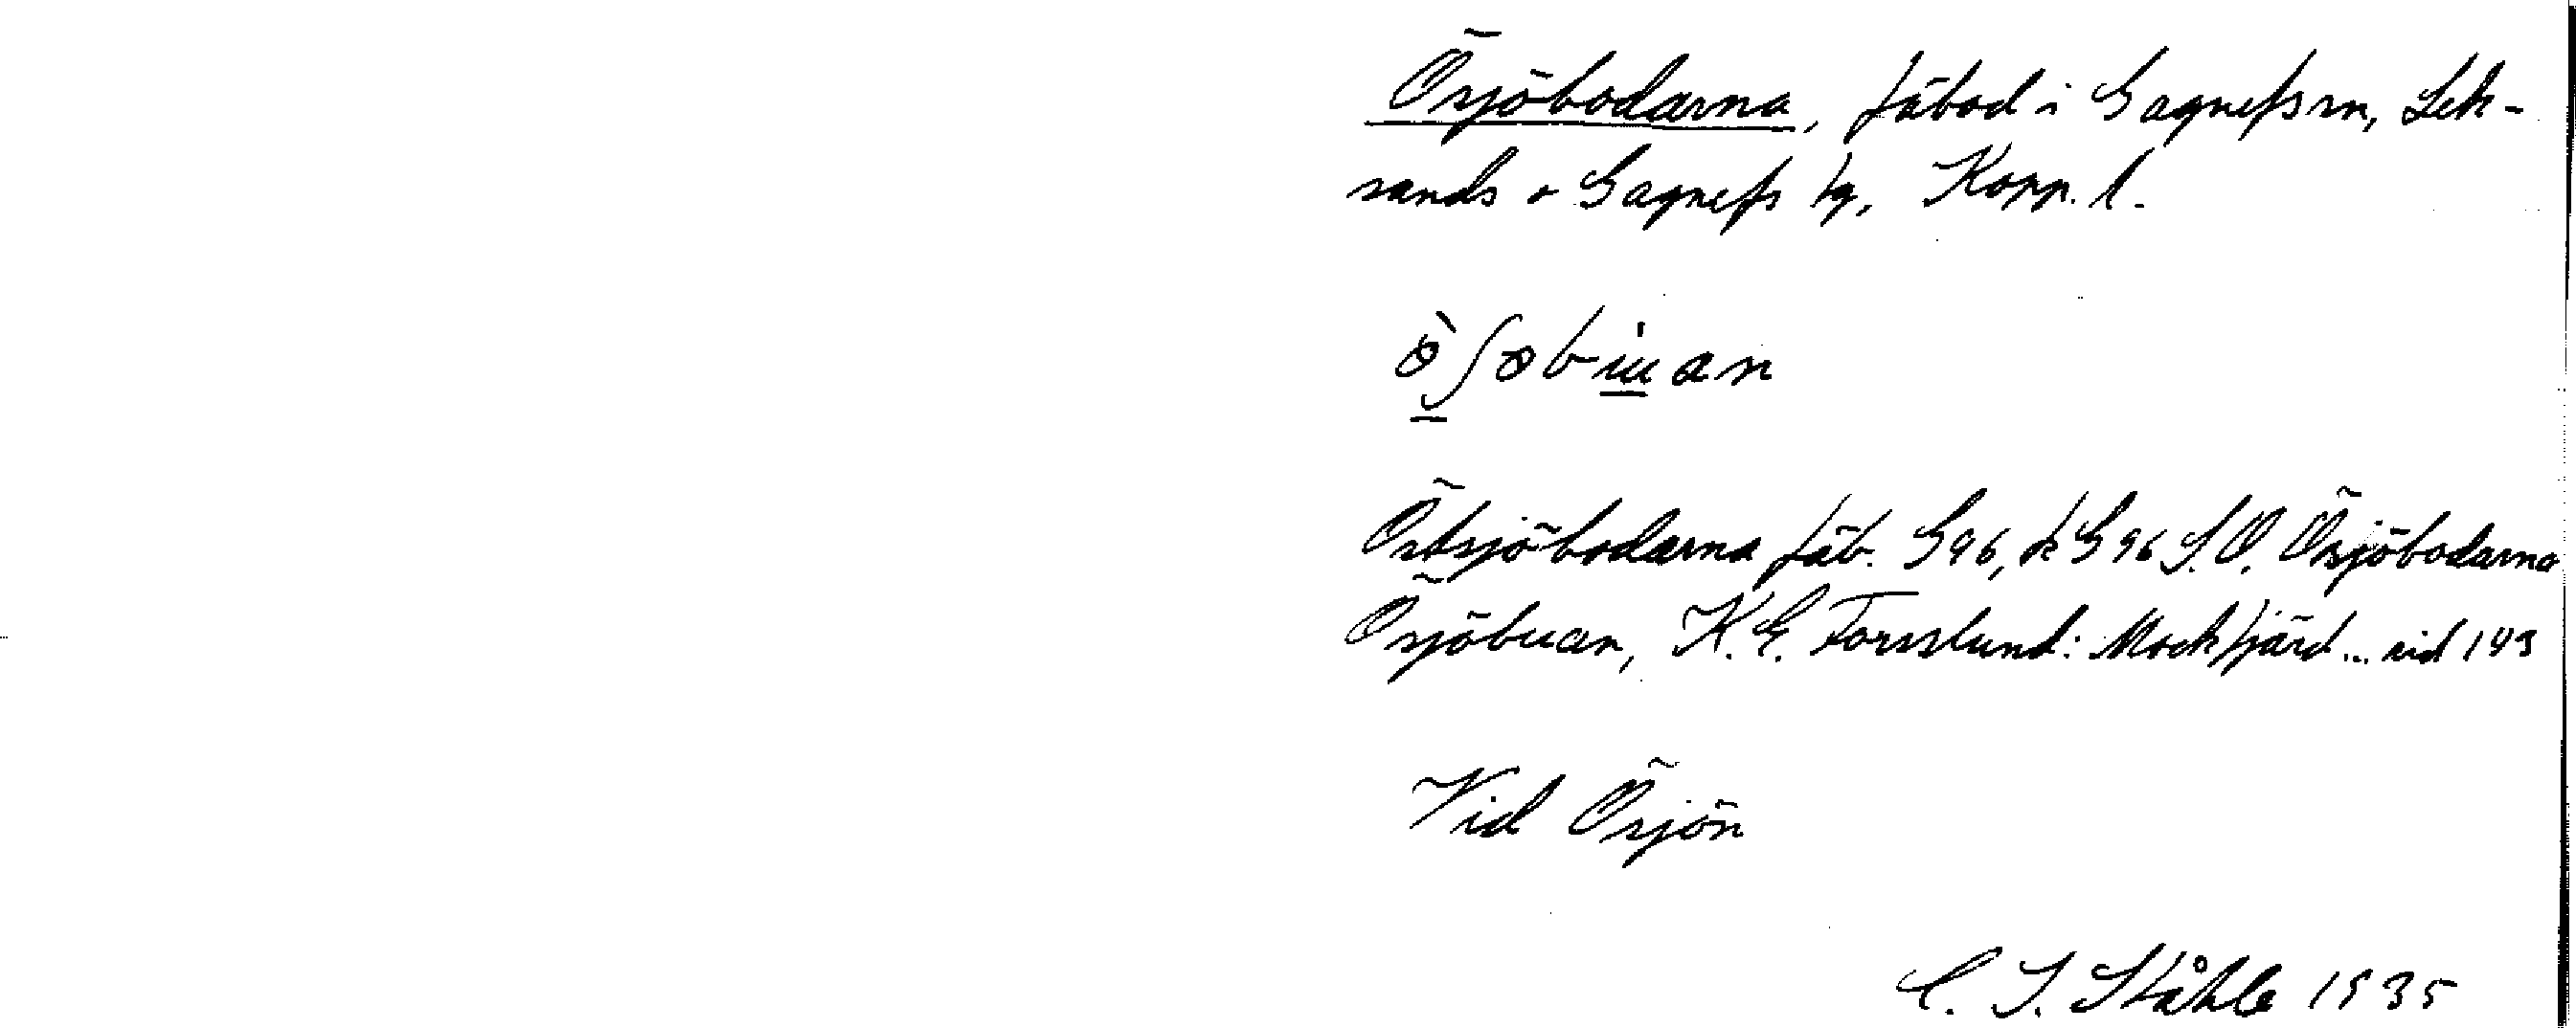 Ösjöbodarna, fäbod i Gagnefs sn, Lek-
sands o Gagnefs tg, Kopp. l.
Östsjöbodarna fäb. G96, k G96 S.O. Ösjöbodarna
Ösjöbuan, K.E. Forsslund: Mockfjärd... sid 143
Vid Ösjön
C. I. Ståhle 1935